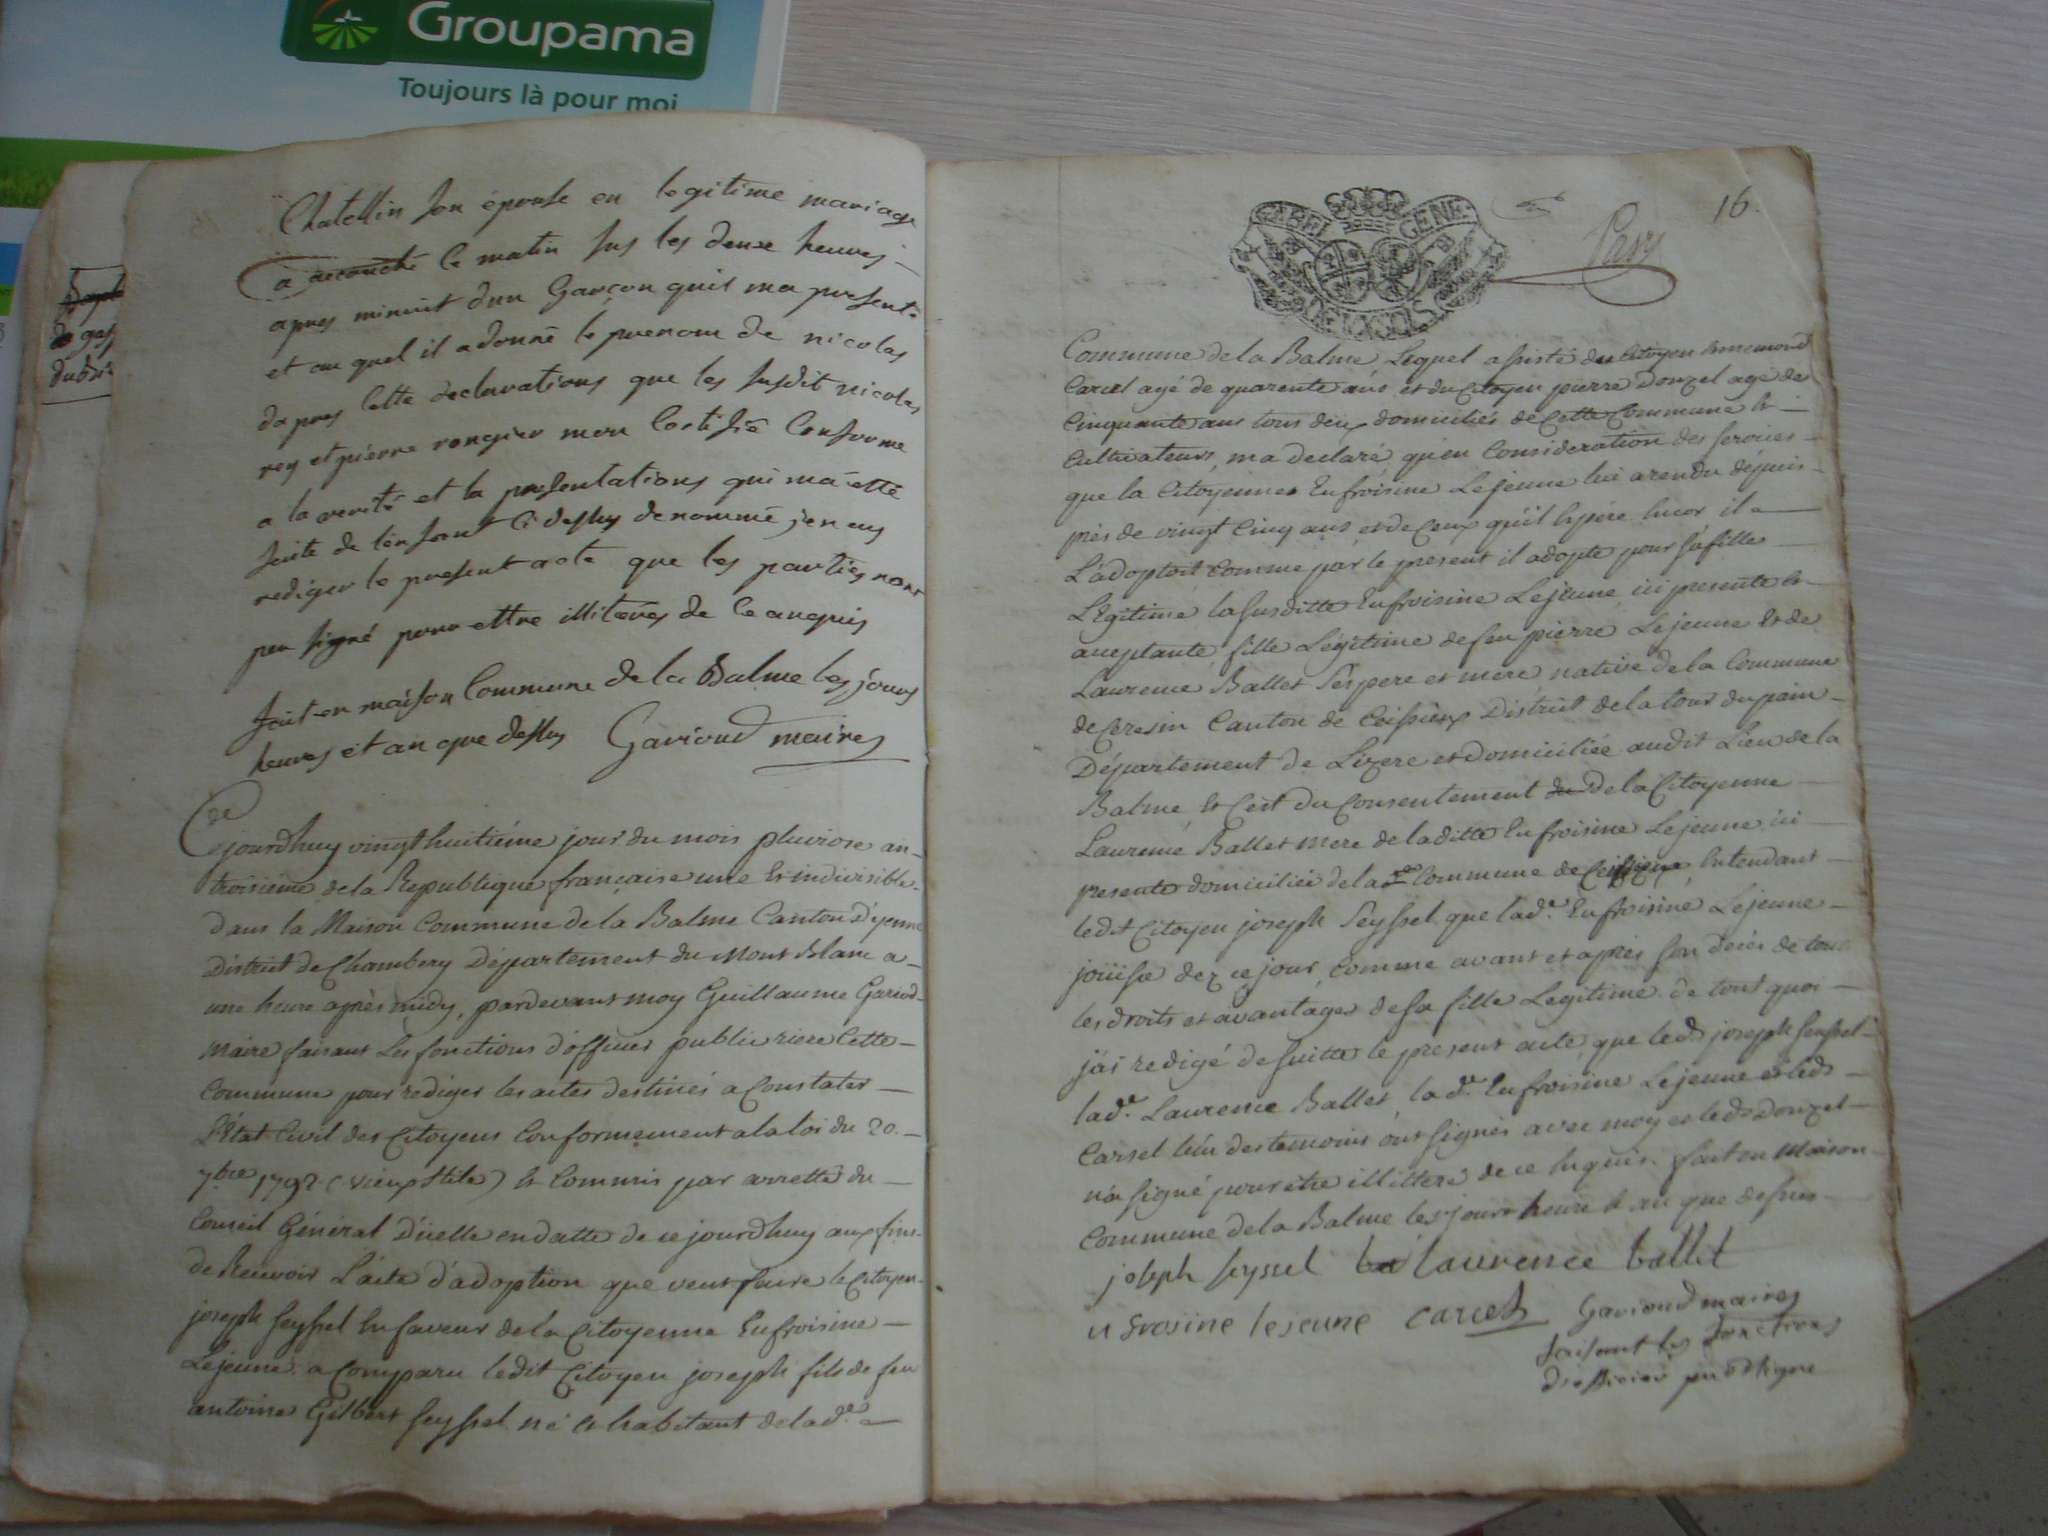 Groupama
Toujours là pour moi
Chatellin son épouse en legitime mariage
a accouché ce matin sus les deux heures
apres minuit d'un Garçon quil ma presenté
et au quel il a donné le prenom de nicolas
dapres cette declarations que les susdit nicolas
rey et pierre rongier mon certifié conforme
a la verité et la presentations qui ma etté
faite de lenfant ci dessus denommé jen ay
rediger le present acte que les parties nont
peu signé pour ettre illiteres de ce anquis
fait en maison Commune de la Balme les jours
heures et an que dessus Gavioud maire
Cejourdhuy vingt huitiéme jour du mois pluviose an
troisième de la Republique française une et indivisible
dans la Maison Commune de la Balme Canton d'yenne
District de Chambery Département du Mont Blanc a
une heure après midy, pardevant moy Guillaume Gariod
Maire faisant les fonctions d'officier public riere cette
Commune pour rediger les actes destinés a Constater
L'état Civil des Citoyens Conformement a la loi du 20
7bre 1792 (vieux stile) et Commis par arretté du
Conseil Général d'icelle en datte de cejourdhuy aux fins
de Recevoir L'acte d'adoption que veut faire le Citoyen
joseph Seyssel en faveur de la Citoyenne Eufroisine
Lejeune. a Comparu ledit Citoyen joseph fils de feu
antoine Gilbert Seyssel né et habitant de lade
16.
GABEL GENE
Commune de la Balme Lequel assisté du Citoyen Annemond
Carcel agé de quarente ans et du Citoyen pierre Donzel agé de
Cinquante ans tous deux domiciliés de Cette Commune et
Cultivateurs, ma declaré qu'en Consideration des services
que la Citoyenne Eufroisine Lejeune lui a rendu dépuis
près de vingt Cinq ans et de Ceux qu'il Espére encor il
L'adoptoit Comme par le present il adopte pour sa fille
Légitime la susditte Eufroisine Lejeune ici presente et
acceptante, fille Légitime de feu pierre Lejeune et de
Laurence Ballet ses pere et mere native de la Commune
de Ceresin Canton de Ceissieux District de la tour du pain
Département de Lizere et domiciliée audit Lieu de la
Balme, et C'est du Consentement du de la Citoyenne
Laurence Ballet mere de laditte Eufroisine Lejeune ici
presente domiciliée de la de Commune de Entendant
ledit Citoyen joseph Seyssel que lade Eufroisine Lejeune
joüisse dez ce jour, Comme avant et après son decès de tout
les droits et avantages de sa fille Legitime. de tout quoi
j'ai redigé de suitte le present acte que led joseph Seyssel
lade Laurence Ballet, lade Eufroisine Lejeune et led
Carsel l'un des temoins ont signés avec moy et led Donzel
n'a signé pour être illitteré de ce Enquis. fait en Maison
Commune de la Balme les jour heure et an que dessus
joseph seyssel laurence ballet
u frosine lejeune carcel Gavioud maire
faisent les fonctions
dofficier